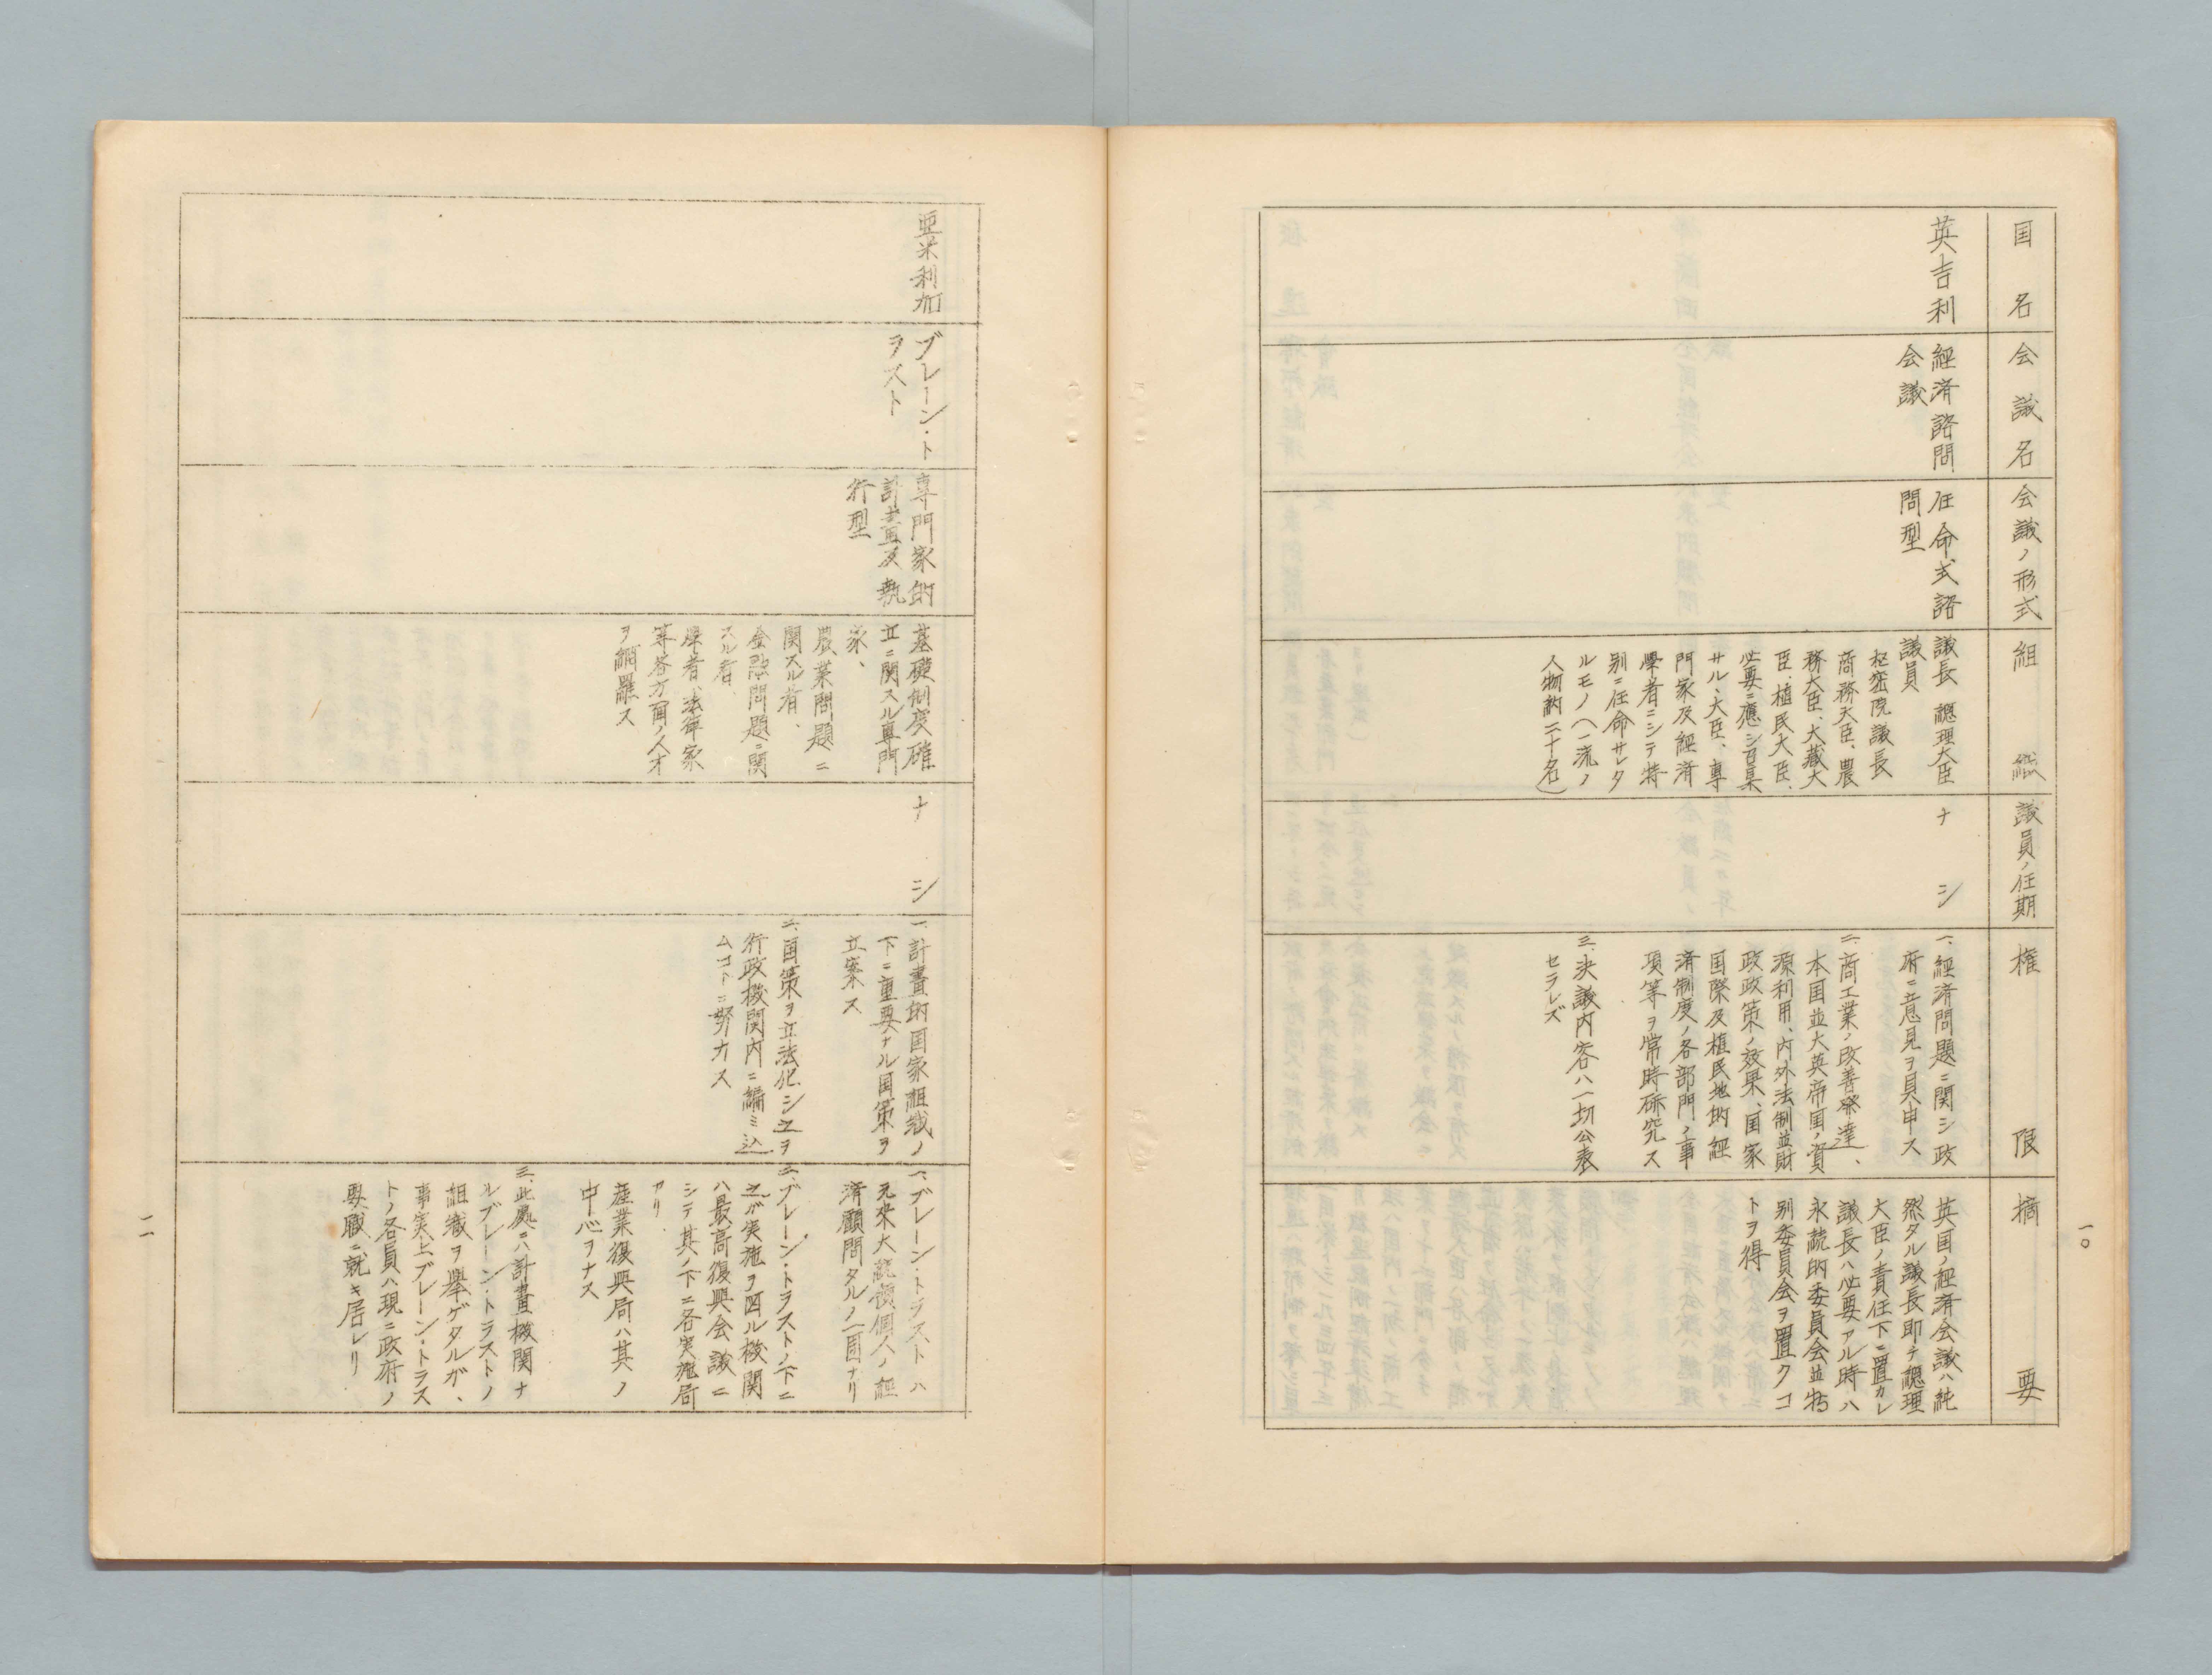 国名
会議名
会議ノ形式
組織
議員ノ任期
権限
摘要
英吉利
経済諮問
会議
任命式諮
問型
議長 総理大臣
議員
枢密院議長
商務大臣、農
務大臣、大蔵大
臣、植民大臣、
必要ニ應シ召集
サル、大臣、専
門家及経済
學者ニシテ特
別ニ任命サレタ
ルモノ(一流ノ
人物約二十名)
ナシ
一、経済問題ニ関シ政
府ニ意見ヲ具申ス
二、商工業ノ改善発達、
本国並大英帝国ノ資
源利用、内外法制並財
政政策ノ效果、国家
国際及植民地的経
済制度ノ各部門ノ事
項等ヲ常時研究ス
三、決議内容ハ一切公表
セラレズ
英国ノ経済会議ハ純
然タル議長即チ総理
大臣ノ責任下ニ置カレ
議長ハ必要アル時ハ
永続的委員会並特
別委員会ヲ置クコ
トヲ得
一〇
亜米利加
ブレーン・ト
ラスト
専門家的
計畫及執
行型
基礎制度確
立ニ関スル専門
家、
農業問題ニ
関スル者、
金融問題ニ関
スル者、
學者、法律家
等各方面ノ人才
ヲ網羅ス
ナシ
一、計畫的国家組織ノ
下ニ重要ナル国策ヲ
立案ス
二、国策ヲ立法化シ之ヲ
行政機関内ニ編ミ込
ムコトニ努力ス
一、ブレーン・トラストハ
元来大統領個人ノ経
済顧問タルノ一団ナリ
二、ブレーン・トラストノ下ニ
之ガ実施ヲ図ル機関
ハ最高復興会議ニ
シテ其ノ下ニ各実施局
アリ
産業復興局ハ其ノ
中心ヲナス
三、此處ニハ計畫機関ナ
ルブレーン・トラストノ
組織ヲ擧ゲタルガ、
事実上ブレーン・トラス
トノ各員ハ現ニ政府ノ
要職ニ就キ居レリ
一一